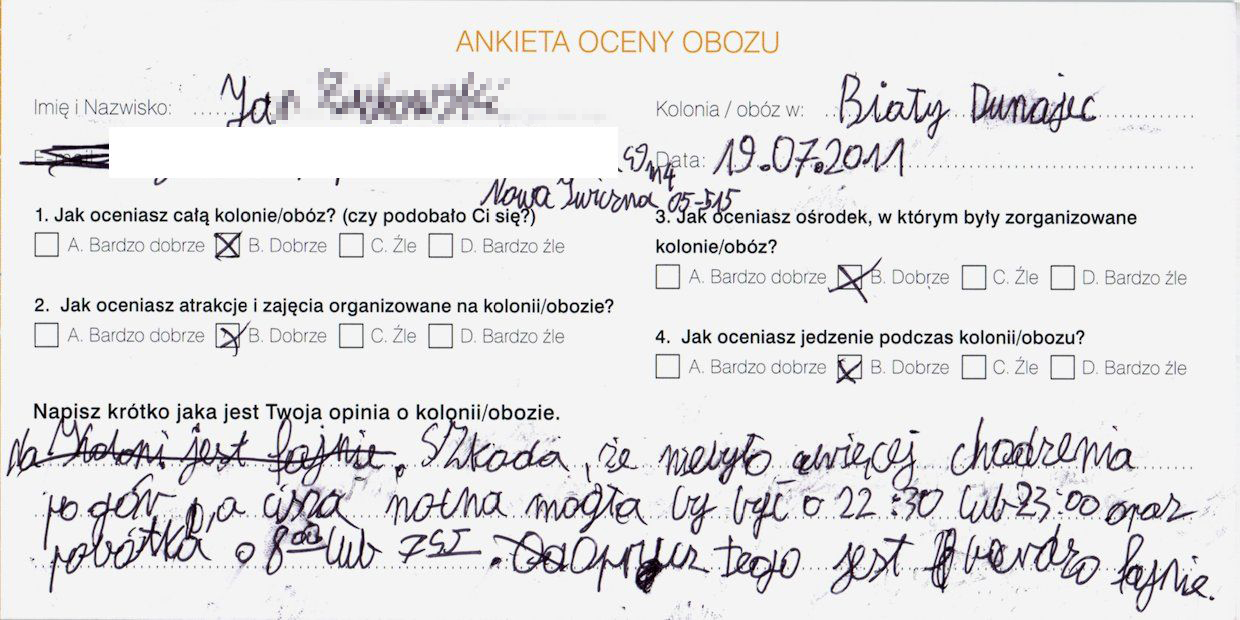 ANKIETA OCENY OBOZU
Imię i Nazwisko: Jan
Kolonia / obóz w: Biały Dunajec
Data: 19.07.2011
m4
Nowa Iwiczna 05-515
1. Jak oceniasz całą kolonie/obóz? (czy podobało Ci się?)
A. Bardzo dobrze B. Dobrze C. Źle D. Bardzo źle
2. Jak oceniasz atrakcje i zajęcia organizowane na kolonii/obozie?
A. Bardzo dobrze B. Dobrze C. Źle D. Bardzo źle
3. Jak oceniasz ośrodek, w którym były zorganizowane
kolonie/obóz?
A. Bardzo dobrze B. Dobrze C. Źle D. Bardzo źle
4. Jak oceniasz jedzenie podczas kolonii/obozu?
A. Bardzo dobrze B. Dobrze C. Źle D. Bardzo źle
Napisz krótko jaka jest Twoja opinia o kolonii/obozie.
Na koloni jest fajnie. Szkoda, że niebyło więcej chodzenia
po gór, a cisza nocna mogła by być o 22:30 lub 23:00 oraz
pobótka o 8 00 lub 7 51. Oprucz tego jest bardzo fajnie.